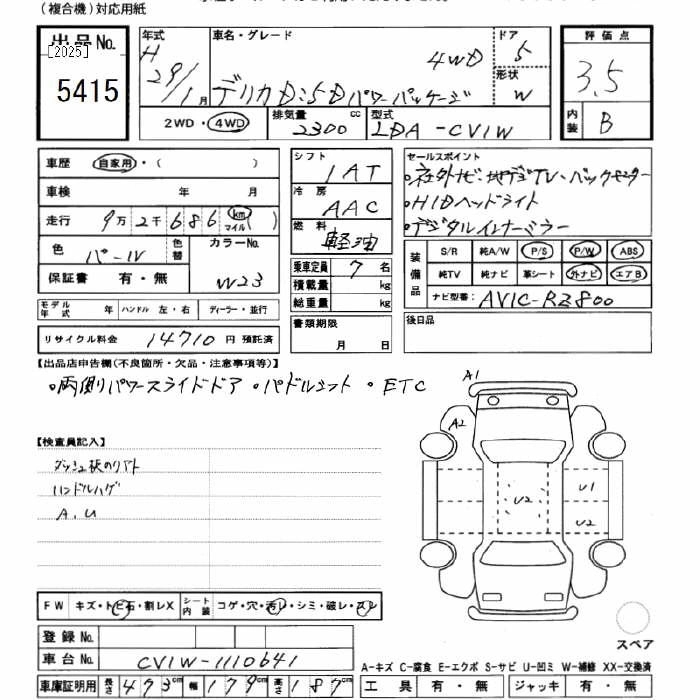 (複合機)対応用紙
出品No.
[2025]
5415
年式
H
29/1月
車名・グレード
4WD
デリカD:5Dパワーパッケージ
ドア
5
形状
W
評価点
3.5
内装
B
2WD・4WD
排気量
2300cc
型式
LDA-CV1W
車歴 自家用・( )
車検 年 月
走行 9万2千686 km マイル ( )
色 パール
色替
カラーNo.
W23
保証書 有・無
モデル年式 年 ハンドル 左・右 ディーラー・並行
リサイクル料金 14710円 預託済
シフト
IAT
冷房
AAC
燃料
軽油
乗車定員 7名
積載量 kg
総重量 kg
書類期限
月 日
セールスポイント
・社外ナビ・地デジTV・バックモニター
・HIDヘッドライト
・デジタルインナーミラー
装備品
S/R 純A/W P/S P/W ABS
純TV 純ナビ 革シート 外ナビ エアB
ナビ型番: AVIC-RZ800
後日品
【出品店申告欄(不良箇所・欠品・注意事項等)】
・両側パワースライドドア ・パドルシフト ・ETC
【検査員記入】
ハンドルハゲ
A,U
A1
A2
U2
U1
U2
スペア
FW キズ・トビ石・割レX
シート内装 コゲ・穴・汚レ・シミ・破レ・スレ
登録No.
車台No. CV1W-1110641
車庫証明用 長さ473cm 幅179cm 高さ187cm
A-キズ C-腐食 E-エクボ S-サビ U-凹ミ W-補修 XX-交換済
工具 有・無 ジャッキ 有・無